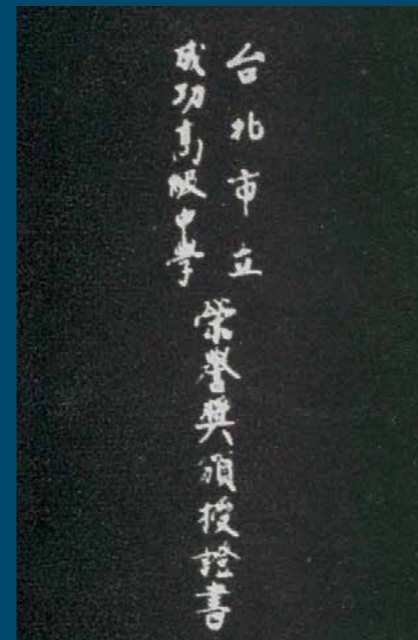 台北市立
成功高級中學
榮譽獎頒授證書